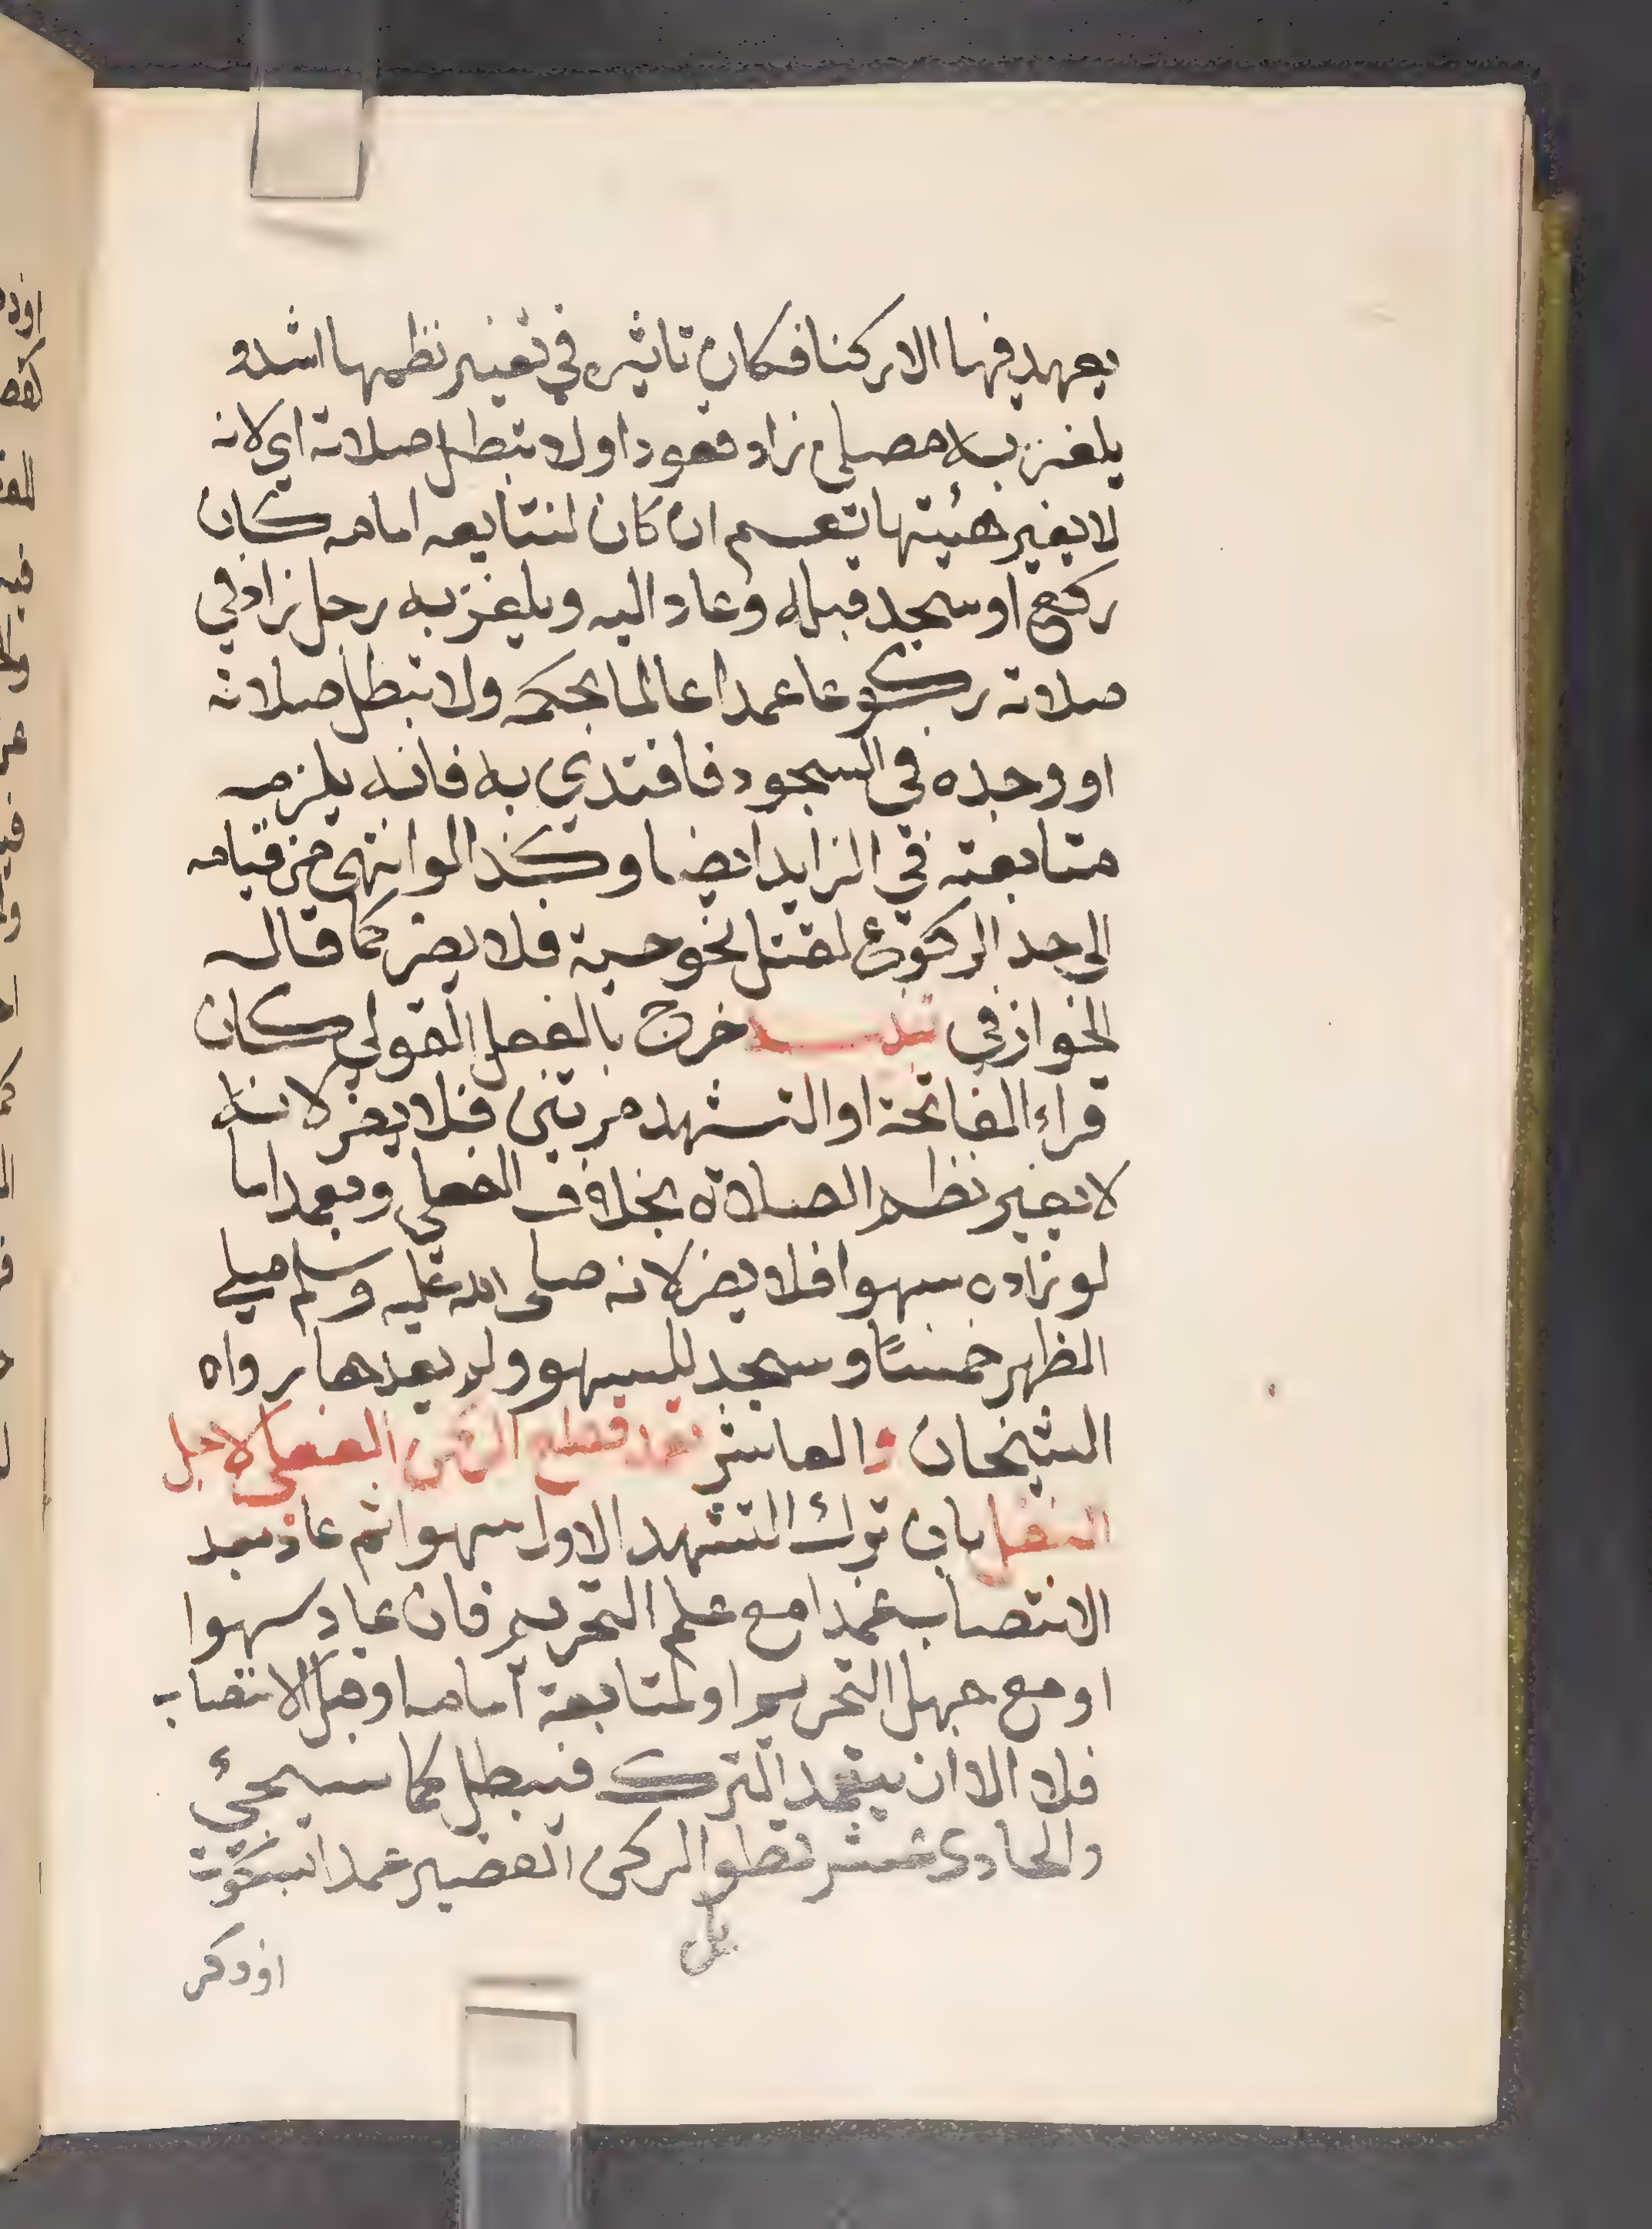 يعهد فيها الا ركنا فكان تاثيره في تغيير نظمها اشد و
يلغز به مصلي زاد قعودا ولا تبطل صلاته اي لانه
لا يغير هيئتها نعم ان كان لمتابعه امامه كان
ركع او سجد قبله وعاد اليه ويلغز به رجل زاد في
صلاته ركوعا عمدا عالما بحكمه ولا تبطل صلاته
او وجده في السجود فاقتدي به فانه يلزمه
متابعته في الزايد ايضا وكذا لو انتهى من قيامه
الى حد الركوع لقتل نحو حية فلا يضر كما قاله
الخوارزمي تنبيه خرج بالفعل القولي كان
قراء الفاتحة او التشهد مرتين فلا يضر لانه
لا يغير نظم الصلاة بخلاف الفعلي وبعمد اما
لو زاده سهوا فلا يضر لانه صلى الله عليه وسلم صلي
الظهر خمسًا وسجد للسهو ولم يعدها رواه
الشيخان والعاشر تعمد قطع الركن الفعلي لاجل
النفل بان ترك التشهد الاول سهوا ثم عاد بعد
الانتصاب عمدا مع علم التحريم فان عاد سهوا
او مع جهل التحريم او لمتابعة امامه او قبل الانتصاب
فلا الا ان يتعمد الترك فتبطل كما سيجئ
والحادي عشر تطو الركن القصير عمدا بسكوت
يل
او ذكر